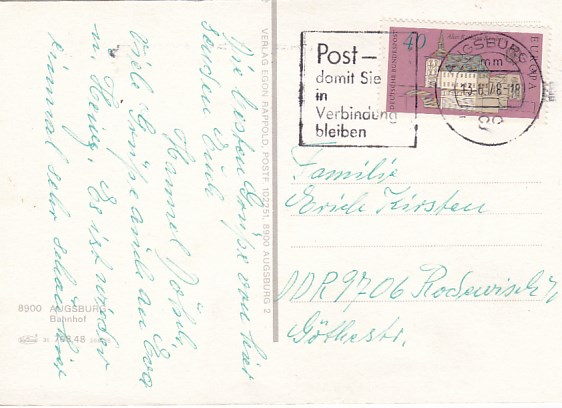 Die besten Grüße von hier
senden Euch
Hannel Josef.
Viele Grüße auch an Eva
u. Heinz. Es ist wieder
einmal sehr schön hier
8900 AUGSBURG
Bahnhof
VERLAG EGON RAPPOLD, POSTF. 102251, 8900 AUGSBURG 2
Post –
damit Sie
in
Verbindung
bleiben
40
EUROPA
DEUTSCHE BUNDESPOST
AUGSBURG
mm
13.6.78-18
Familie
Erich Kirsten
DDR 9706 Rodewisch i/V.
Göthestr.